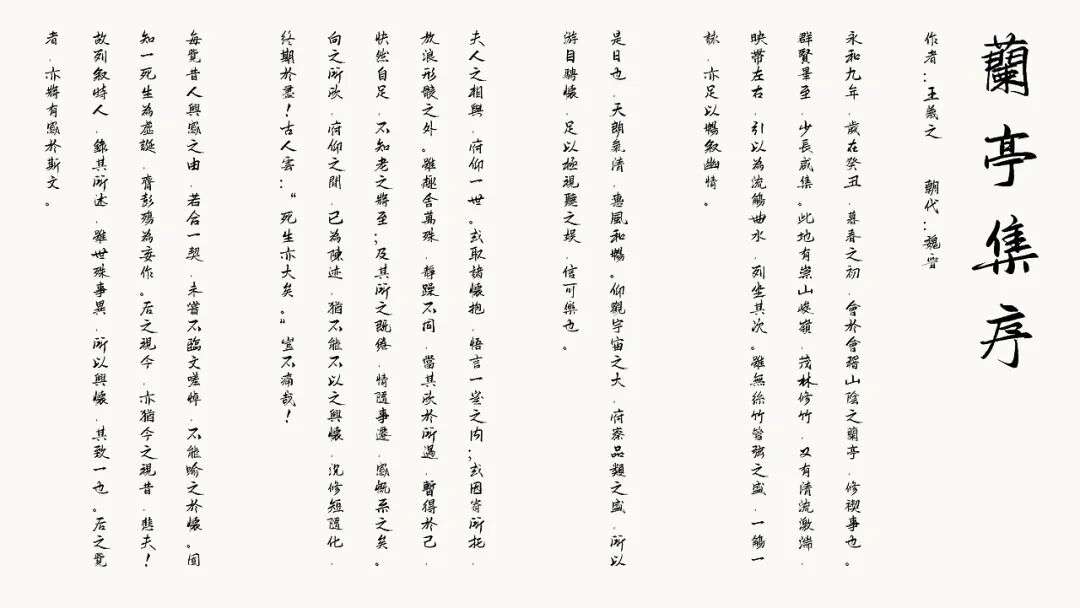 蘭亭集序
作者：王羲之 朝代：魏晉
永和九年，歲在癸丑，暮春之初，會於會稽山陰之蘭亭，修禊事也。
群賢畢至，少長咸集。此地有崇山峻嶺，茂林修竹，又有清流激湍，
映帶左右，引以為流觴曲水，列坐其次。雖無絲竹管弦之盛，一觴一
詠，亦足以暢敘幽情。
是日也，天朗氣清，惠風和暢。仰觀宇宙之大，俯察品類之盛，所以
游目騁懷，足以極視聽之娛，信可樂也。
夫人之相與，俯仰一世。或取諸懷抱，悟言一室之內；或因寄所托，
放浪形骸之外。雖趣舍萬殊，靜躁不同，當其欣於所遇，暫得於己，
快然自足，不知老之將至；及其所之既倦，情隨事遷，感慨系之矣。
向之所欣，俯仰之間，已為陳迹，猶不能不以之興懷，況修短隨化，
終期於盡！古人雲：“死生亦大矣。”豈不痛哉！
每覽昔人興感之由，若合一契，未嘗不臨文嗟悼，不能喻之於懷。固
知一死生為虛誕，齊彭殤為妄作。后之視今，亦猶今之視昔，悲夫！
故列敘時人，錄其所述，雖世殊事異，所以興懷，其致一也。后之覽
者，亦將有感於斯文。